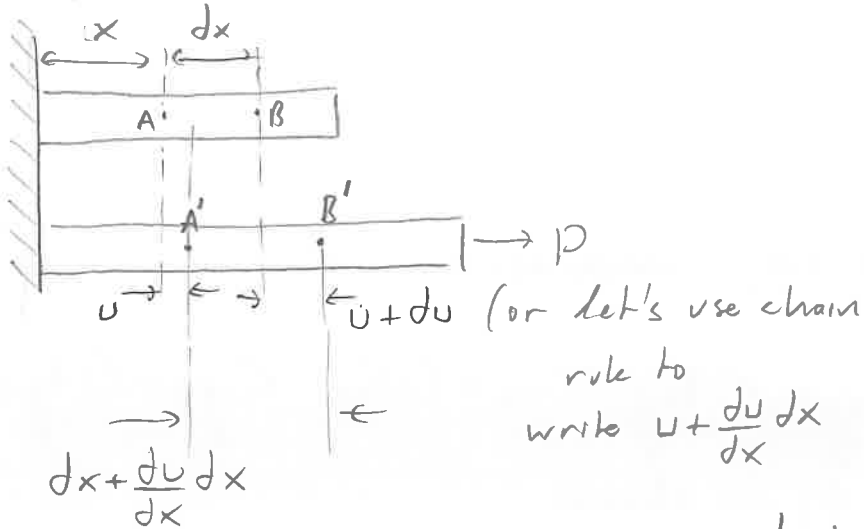 x dx
A B
A' B'
P
u u + du (or let's use chain
rule to
write u + du/dx dx
dx + du/dx dx